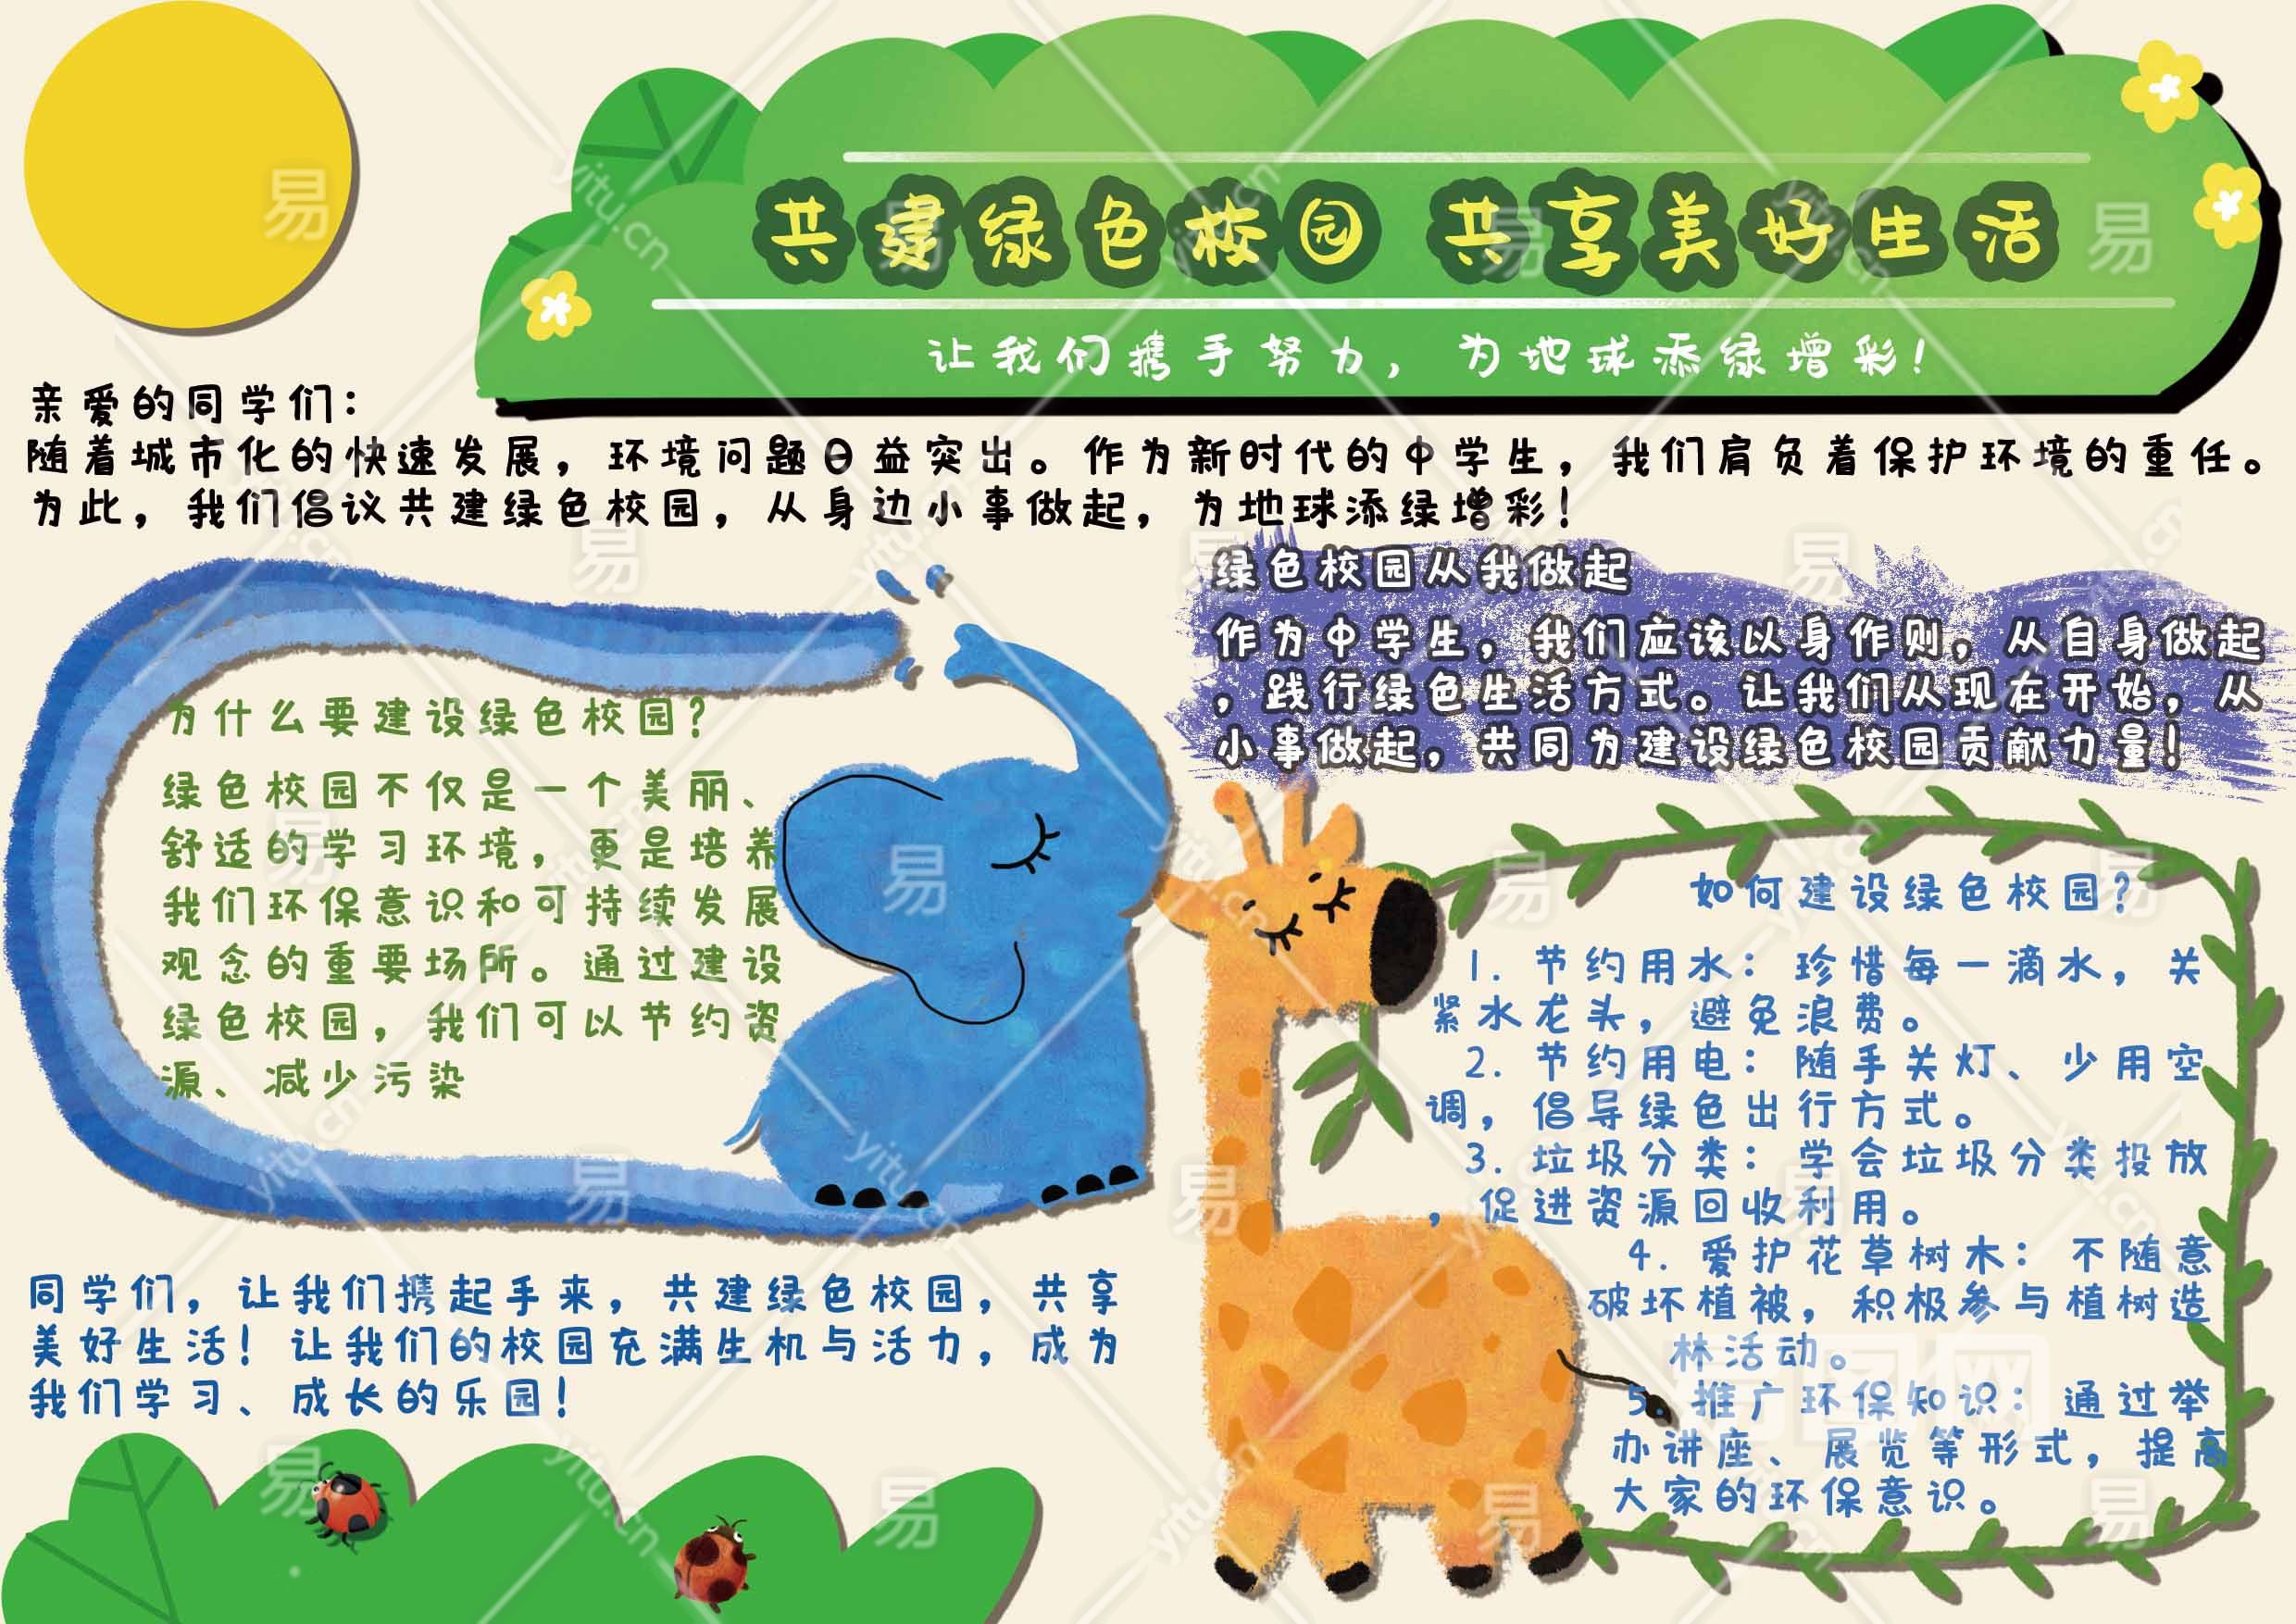 共建绿色校园 共享美好生活
让我们携手努力，为地球添绿增彩！
亲爱的同学们：
随着城市化的快速发展，环境问题日益突出。作为新时代的中学生，我们肩负着保护环境的重任。
为此，我们倡议共建绿色校园，从身边小事做起，为地球添绿增彩！
绿色校园从我做起
作为中学生，我们应该以身作则，从自身做起
，践行绿色生活方式。让我们从现在开始，从
小事做起，共同为建设绿色校园贡献力量！
为什么要建设绿色校园？
绿色校园不仅是一个美丽、
舒适的学习环境，更是培养
我们环保意识和可持续发展
观念的重要场所。通过建设
绿色校园，我们可以节约资
源、减少污染
如何建设绿色校园？
1. 节约用水：珍惜每一滴水，关
紧水龙头，避免浪费。
2. 节约用电：随手关灯、少用空
调，倡导绿色出行方式。
3. 垃圾分类：学会垃圾分类投放
，促进资源回收利用。
4. 爱护花草树木：不随意
破坏植被，积极参与植树造
林活动。
5. 推广环保知识：通过举
办讲座、展览等形式，提高
大家的环保意识。
同学们，让我们携起手来，共建绿色校园，共享
美好生活！让我们的校园充满生机与活力，成为
我们学习、成长的乐园！
易图网
易
yitu.cn